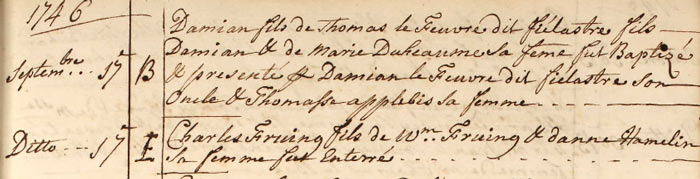 1746
Damian fils de Thomas le Feuvre dit fiélastre fils
Damian & de Marie Duheaume sa feme fut Baptizé
Septembre... 17e B & presenté p Damian le Feuvre dit fiélastre son
Oncle & Thomasse applebis sa femme
Ditto --- 17e E Charles Fruing fils de Wm. Fruing & danne Hamelin
Sa femme fut Enterré